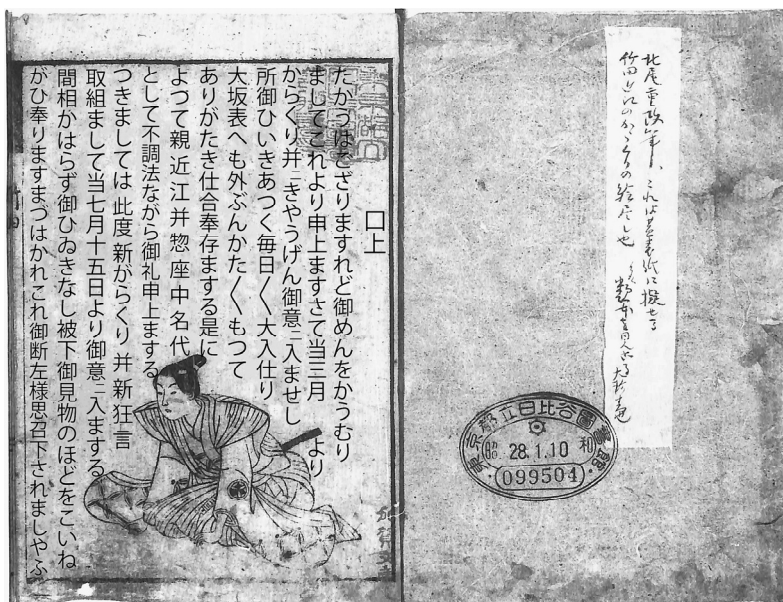 北尾重政筆、これは墨表紙に擬せる
竹田近江のからくりの絵尽し也
東京都立日比谷図書館
昭和
28.1.10
(099504)
口上
たかふはござりますれど御めんをかうむり
ましてこれより申上ますさて当三月より
からくり并ニきやうげん御意ニ入ませし
所御ひいきあつく毎日〱大入仕り
大坂表へも外ぶんかた〱もつて
ありがたき仕合奉存まする是に
よつて親近江并惣座中名代
として不調法ながら御礼申上まする
つきましては此度新がらくり并新狂言
取組まして当七月十五日より御意ニ入まする
間相かはらず御ひゐきなし被下御見物のほどをこいね
がひ奉りますまづはかれこれ御断左様思召下されましやふ